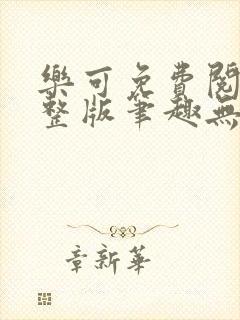 樂可免費閱
整版筆趣無
章新華